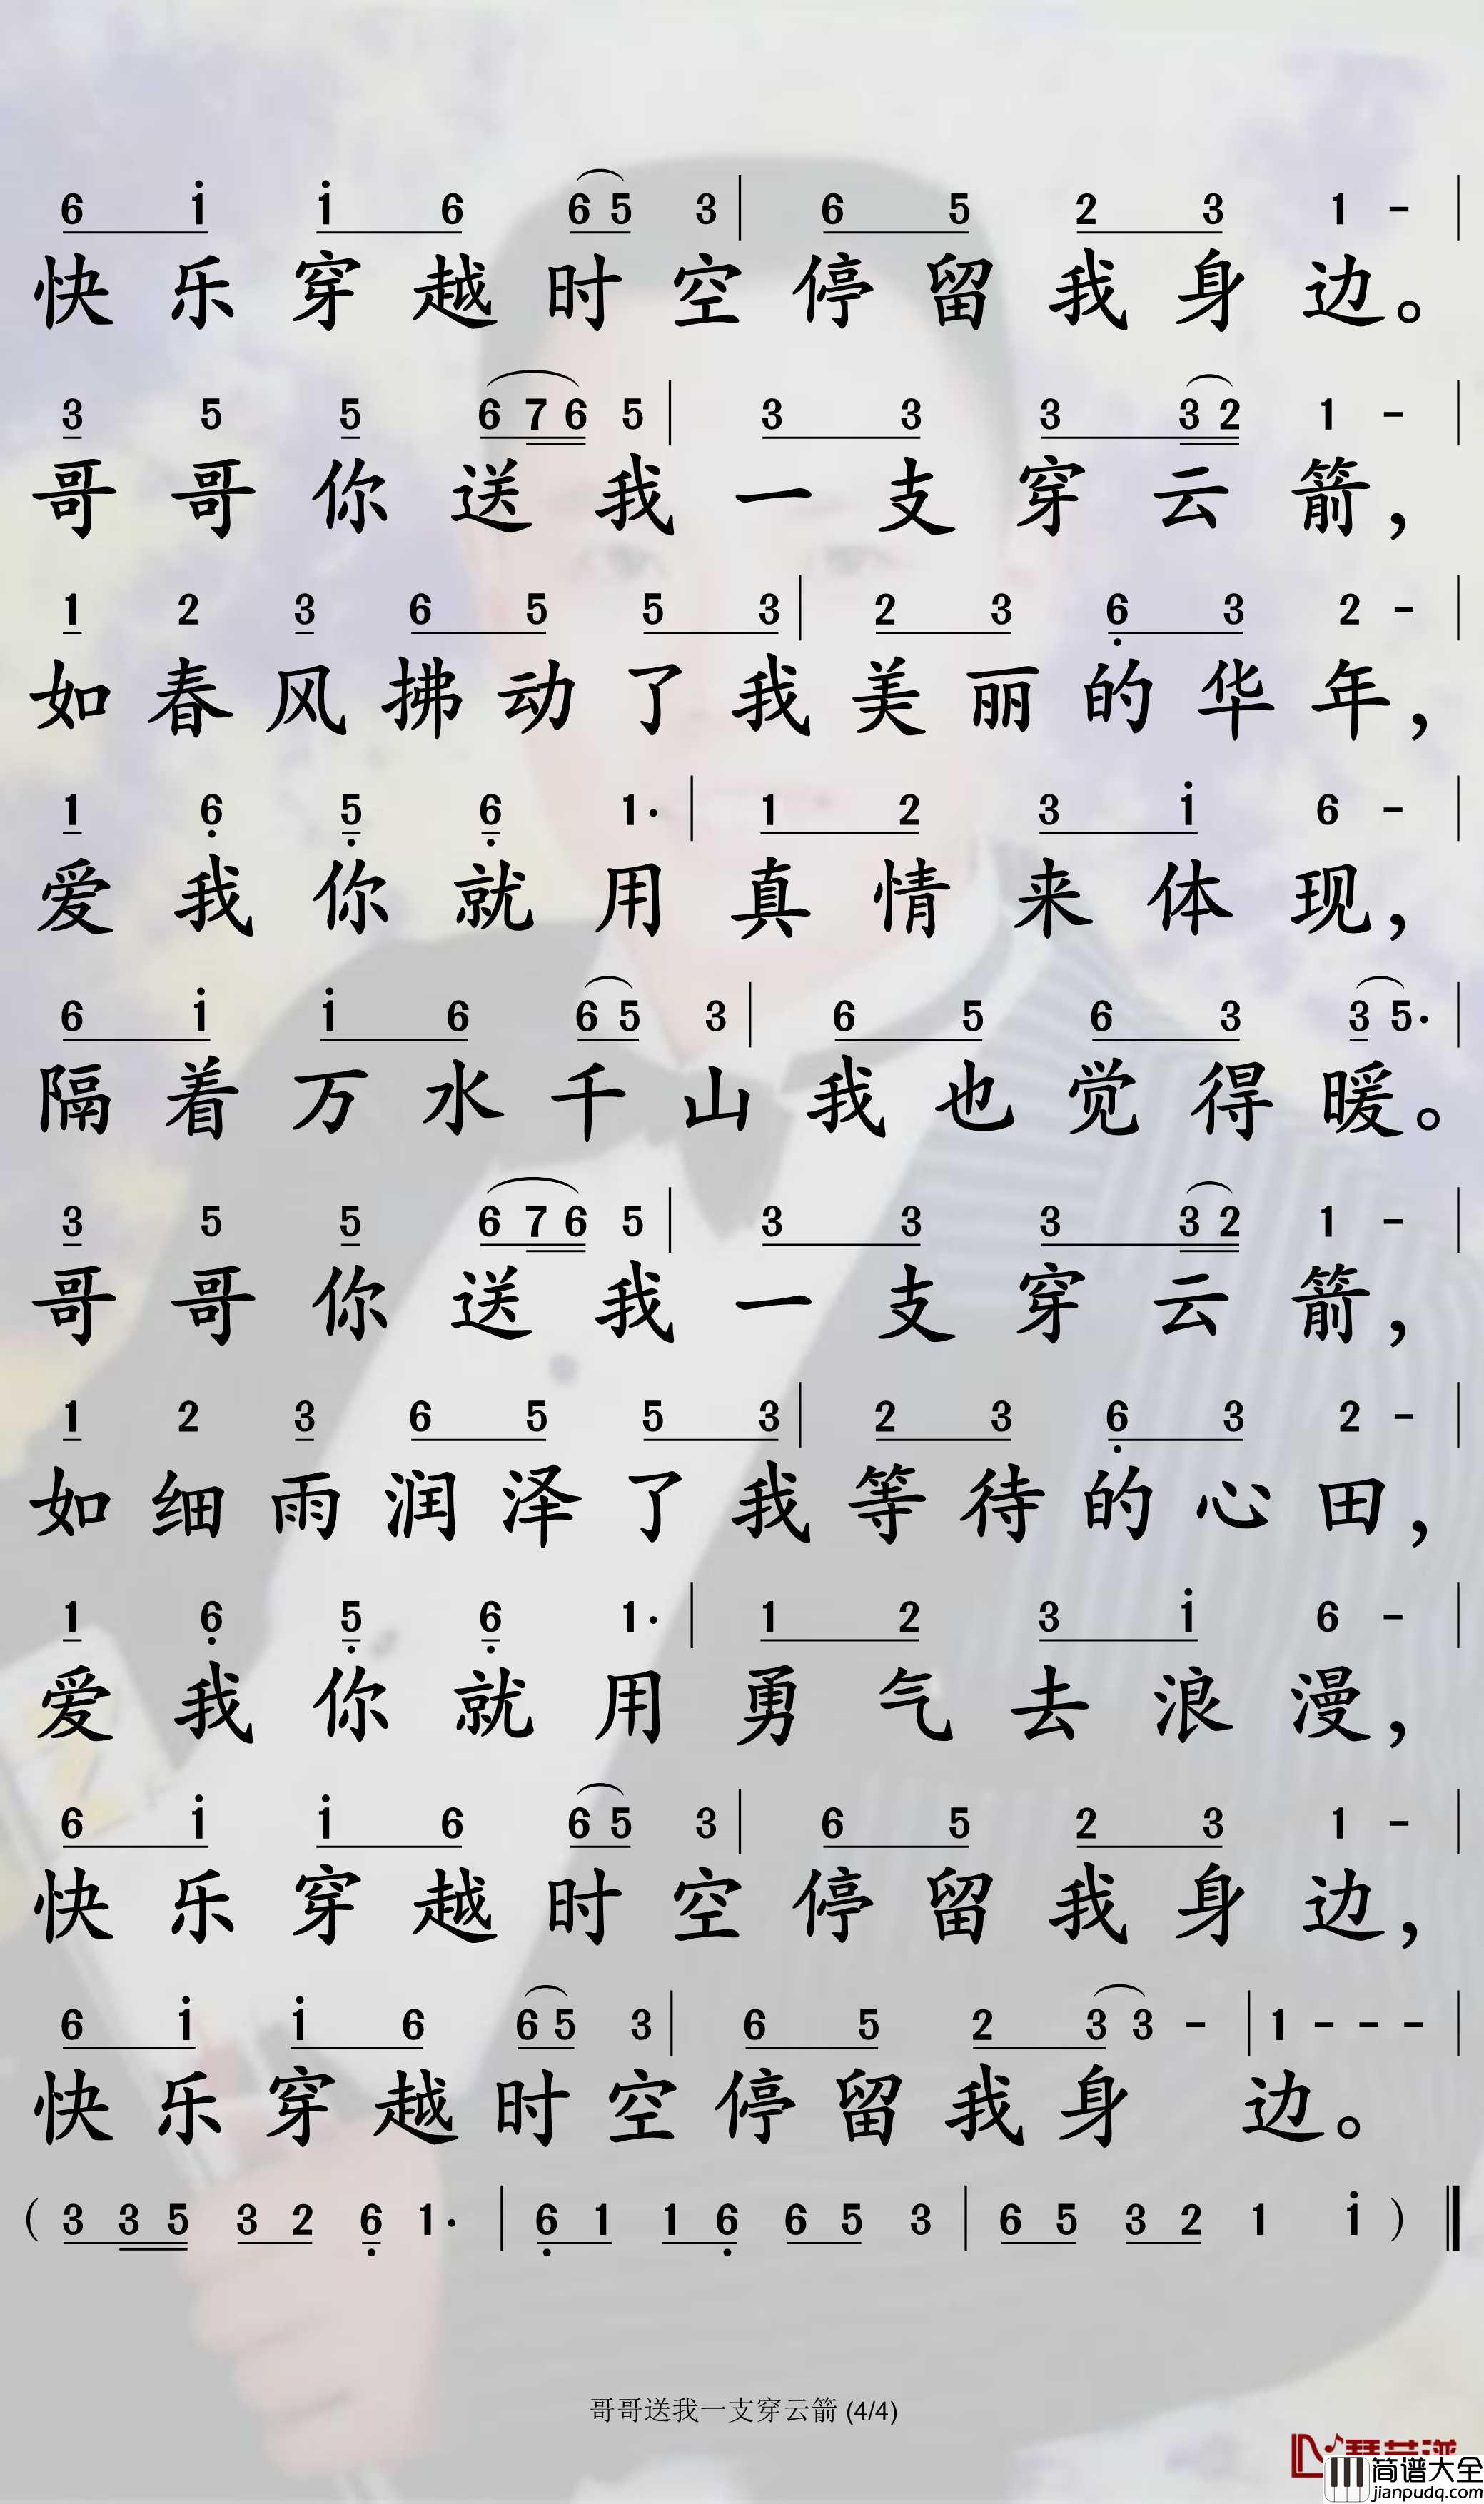 6 i i 6 6 5 3 | 6 5 2 3 1 - |
快乐穿越时空停留我身边。
3 5 5 6 7 6 5 | 3 3 3 3 2 1 - |
哥哥你送我一支穿云箭，
1 2 3 6 5 5 3 | 2 3 6̣ 3 2 - |
如春风拂动了我美丽的华年，
1 6̣ 5̣ 6̣ 1· | 1 2 3 i 6 - |
爱我你就用真情来体现，
6 i i 6 6 5 3 | 6 5 6 3 3 5· |
隔着万水千山我也觉得暖。
3 5 5 6 7 6 5 | 3 3 3 3 2 1 - |
哥哥你送我一支穿云箭，
1 2 3 6 5 5 3 | 2 3 6̣ 3 2 - |
如细雨润泽了我等待的心田，
1 6̣ 5̣ 6̣ 1· | 1 2 3 i 6 - |
爱我你就用勇气去浪漫，
6 i i 6 6 5 3 | 6 5 2 3 1 - |
快乐穿越时空停留我身边，
6 i i 6 6 5 3 | 6 5 2 3 3 - | 1 - - - |
快乐穿越时空停留我身边。
( 3 3 5 3 2 6̣ 1· | 6̣ 1 1 6̣ 6 5 3 | 6 5 3 2 1 i ) ‖
哥哥送我一支穿云箭 (4/4)
简谱大全
jianpudq.com